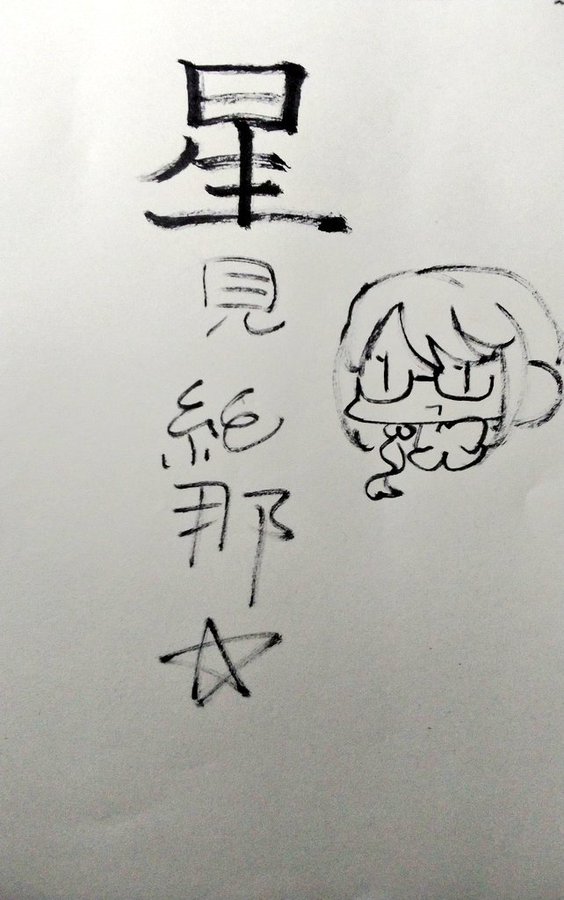 星見純那☆